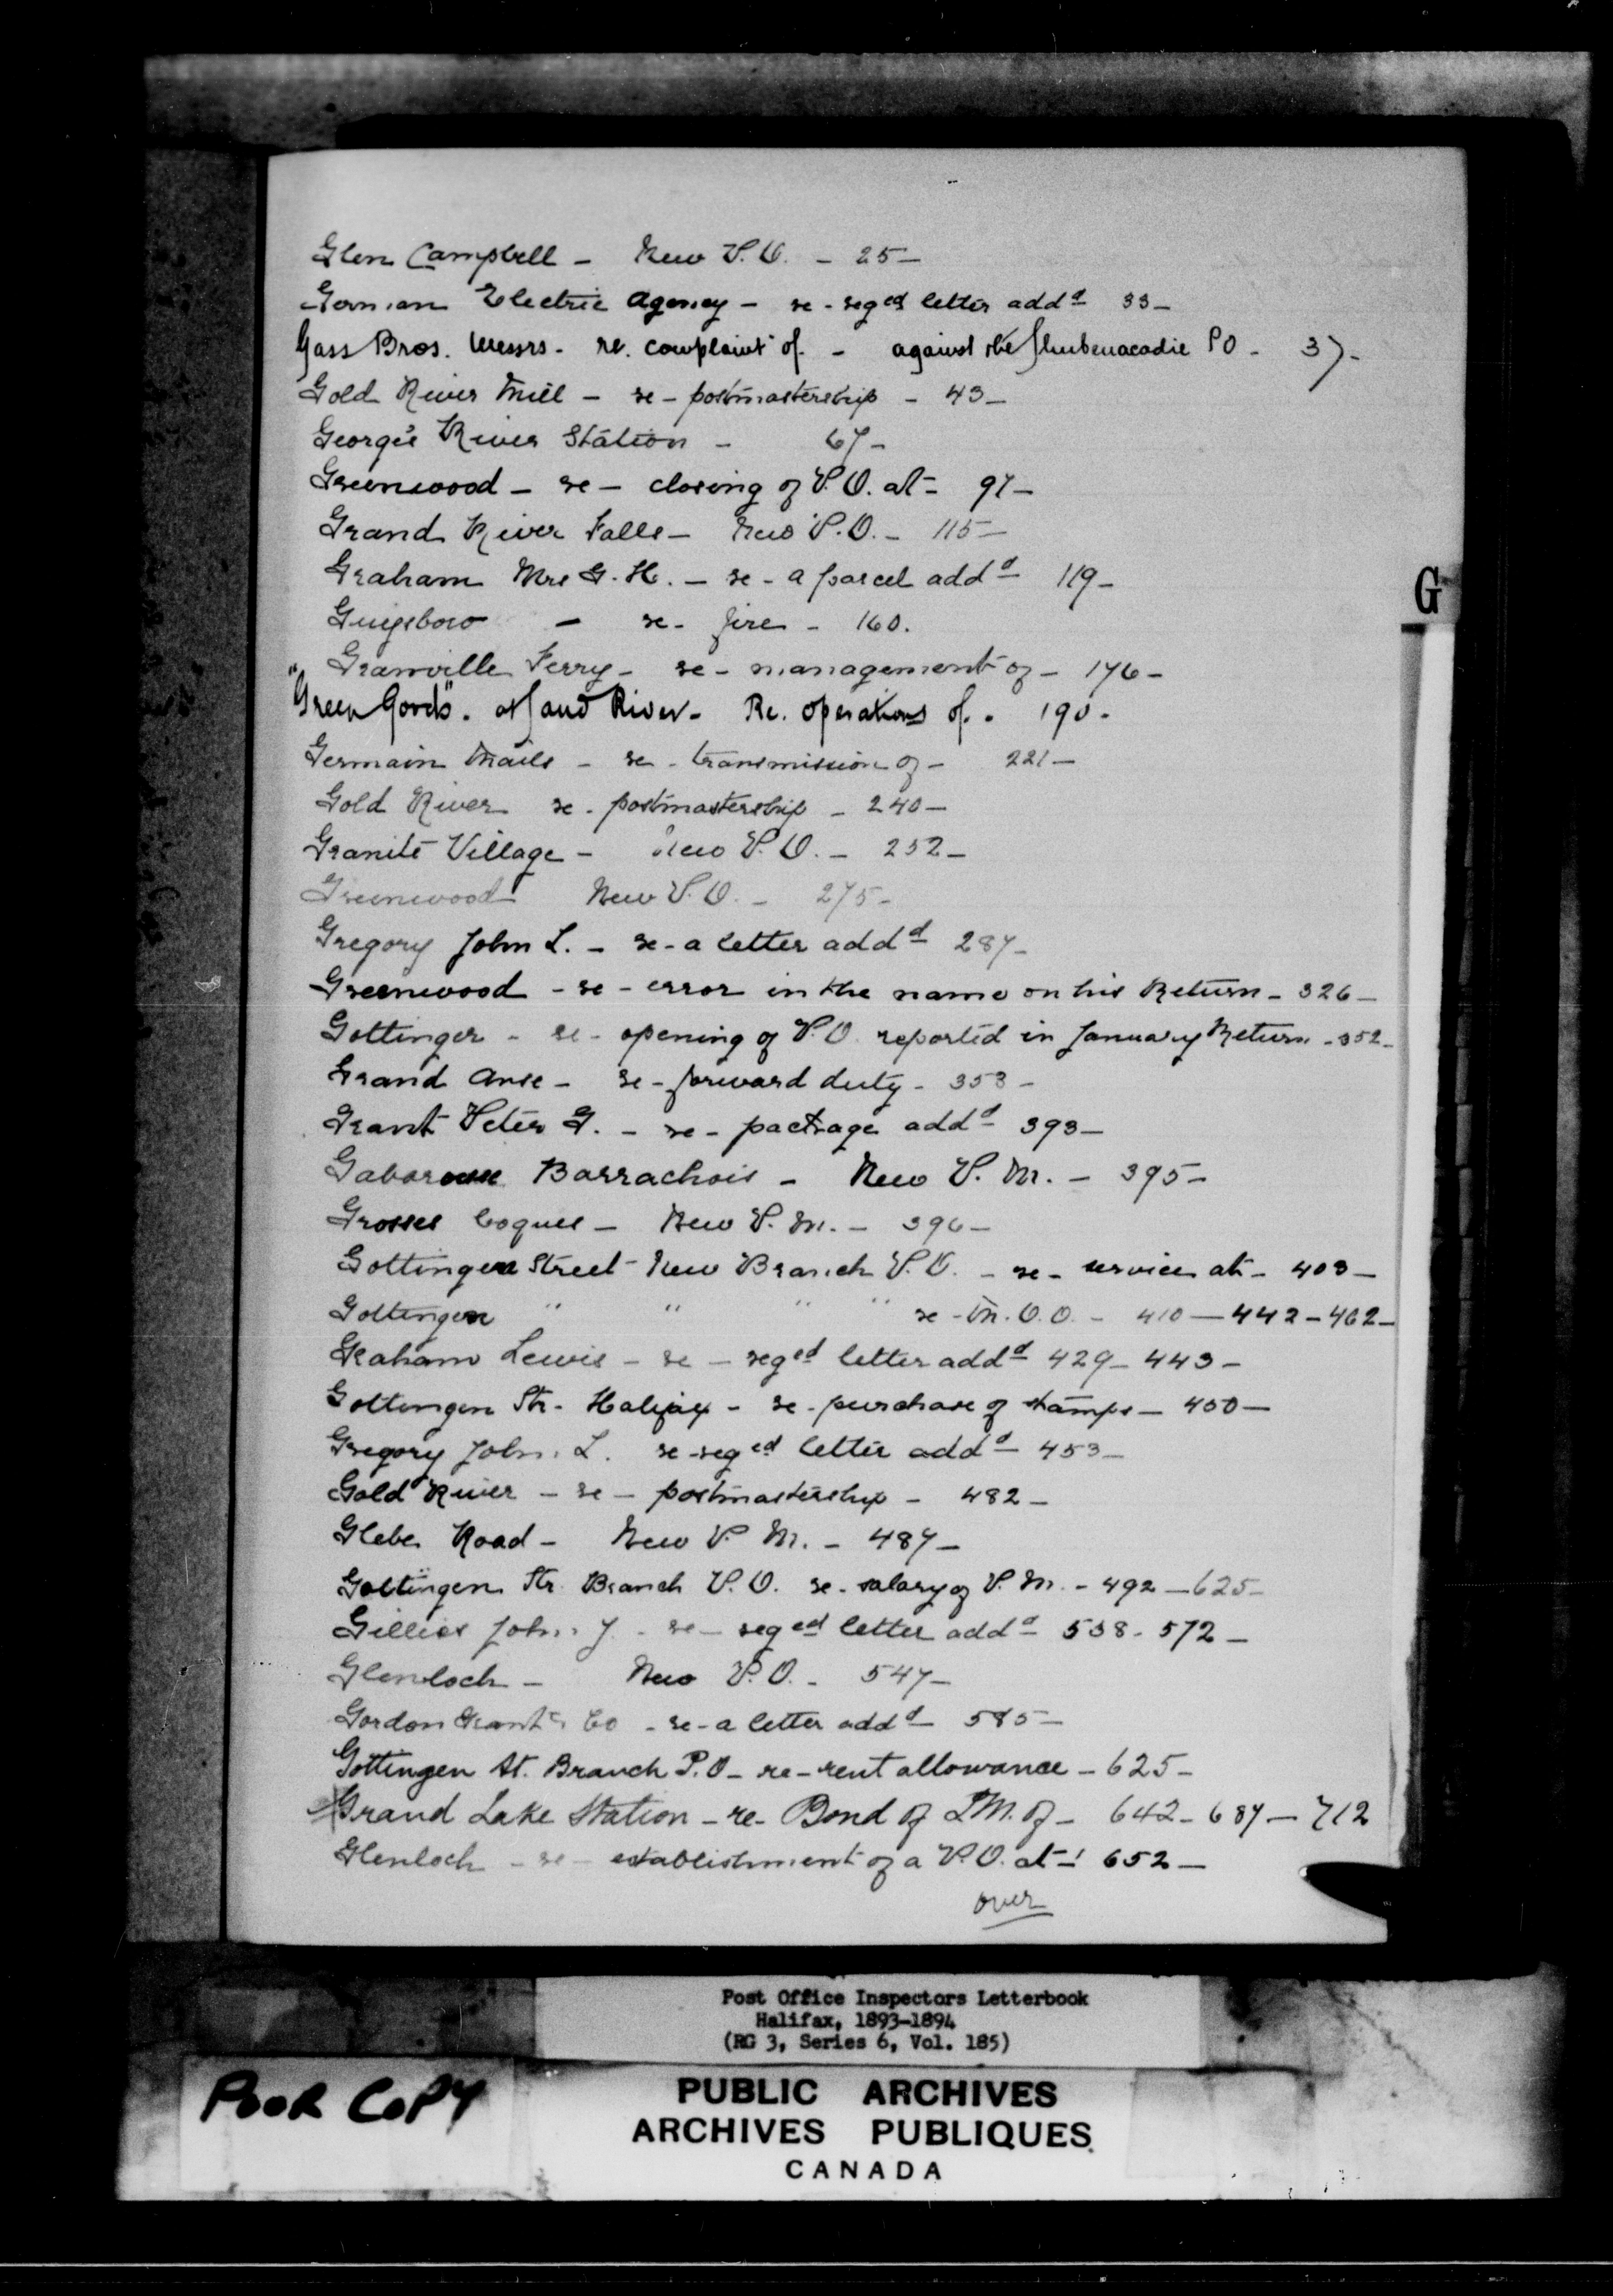 Glen Campbell - New P.O. - 25 -
German Electric Agency - re - reged letter addd 33 -
Gass Bros. Messrs - re. complaint of - against the Shubenacadie PO - 37 -
Gold River Mill - re - postmastership - 43 -
George's River Station - 67 -
Greenwood - re - closing of P.O. at - 97 -
Grand River Falls - New P.O. - 115 -
Graham Mrs G. H. - re - a parcel addd 119 -
Guysboro - re - fire - 160.
Granville Ferry - re - management of - 176 -
"Green Goods". at Sand River - Re. operations of. - 190 -
Germain Mails - re - transmission of - 221 -
Gold River re - postmastership - 240 -
Granite Village - New P.O. - 252 -
Greenwood New P.O. - 275 -
Gregory John L. - re - a letter addd 287 -
Greenwood - re - error in the name on his Return - 326 -
Gottinger - re - opening of P.O. reported in January Return - 352 -
Grand Anse - re - forward duty - 353 -
Grant Peter G. - re - package addd 393 -
Gabarouse Barrachois - New P.M. - 395 -
Grosses Coques - New P.M. - 396 -
Gottingen Street - New Branch P.O. - re - services at - 403 -
Gottingen " " " " re - M.O.O. - 410 - 442 - 462 -
Graham Lewis - re - reged letter addd 429 - 443 -
Gottingen Str. Halifax - re - purchase of stamps - 450 -
Gregory John. L. re - reged letter addd 453 -
Gold River - re - postmastership - 482 -
Glebe Road - New P.M. - 487 -
Gottingen Str. Branch P.O. re - salary of P.M. - 492 - 625 -
Gillies John J. - re - reged letter addd 538 - 572 -
Glenloch - New P.O. - 547 -
Gordon Grant & Co - re - a letter addd 585 -
Gottingen St. Branch P.O - re - rent allowance - 625 -
Grand Lake Station - re - Bond of P.M. of - 642 - 687 - 712
Glenloch - re - establishment of a P.O. at - 652 -
over
G
Post Office Inspectors Letterbook
Halifax, 1893-1894
(RG 3, Series 6, Vol. 185)
POOR COPY
PUBLIC ARCHIVES
ARCHIVES PUBLIQUES
CANADA